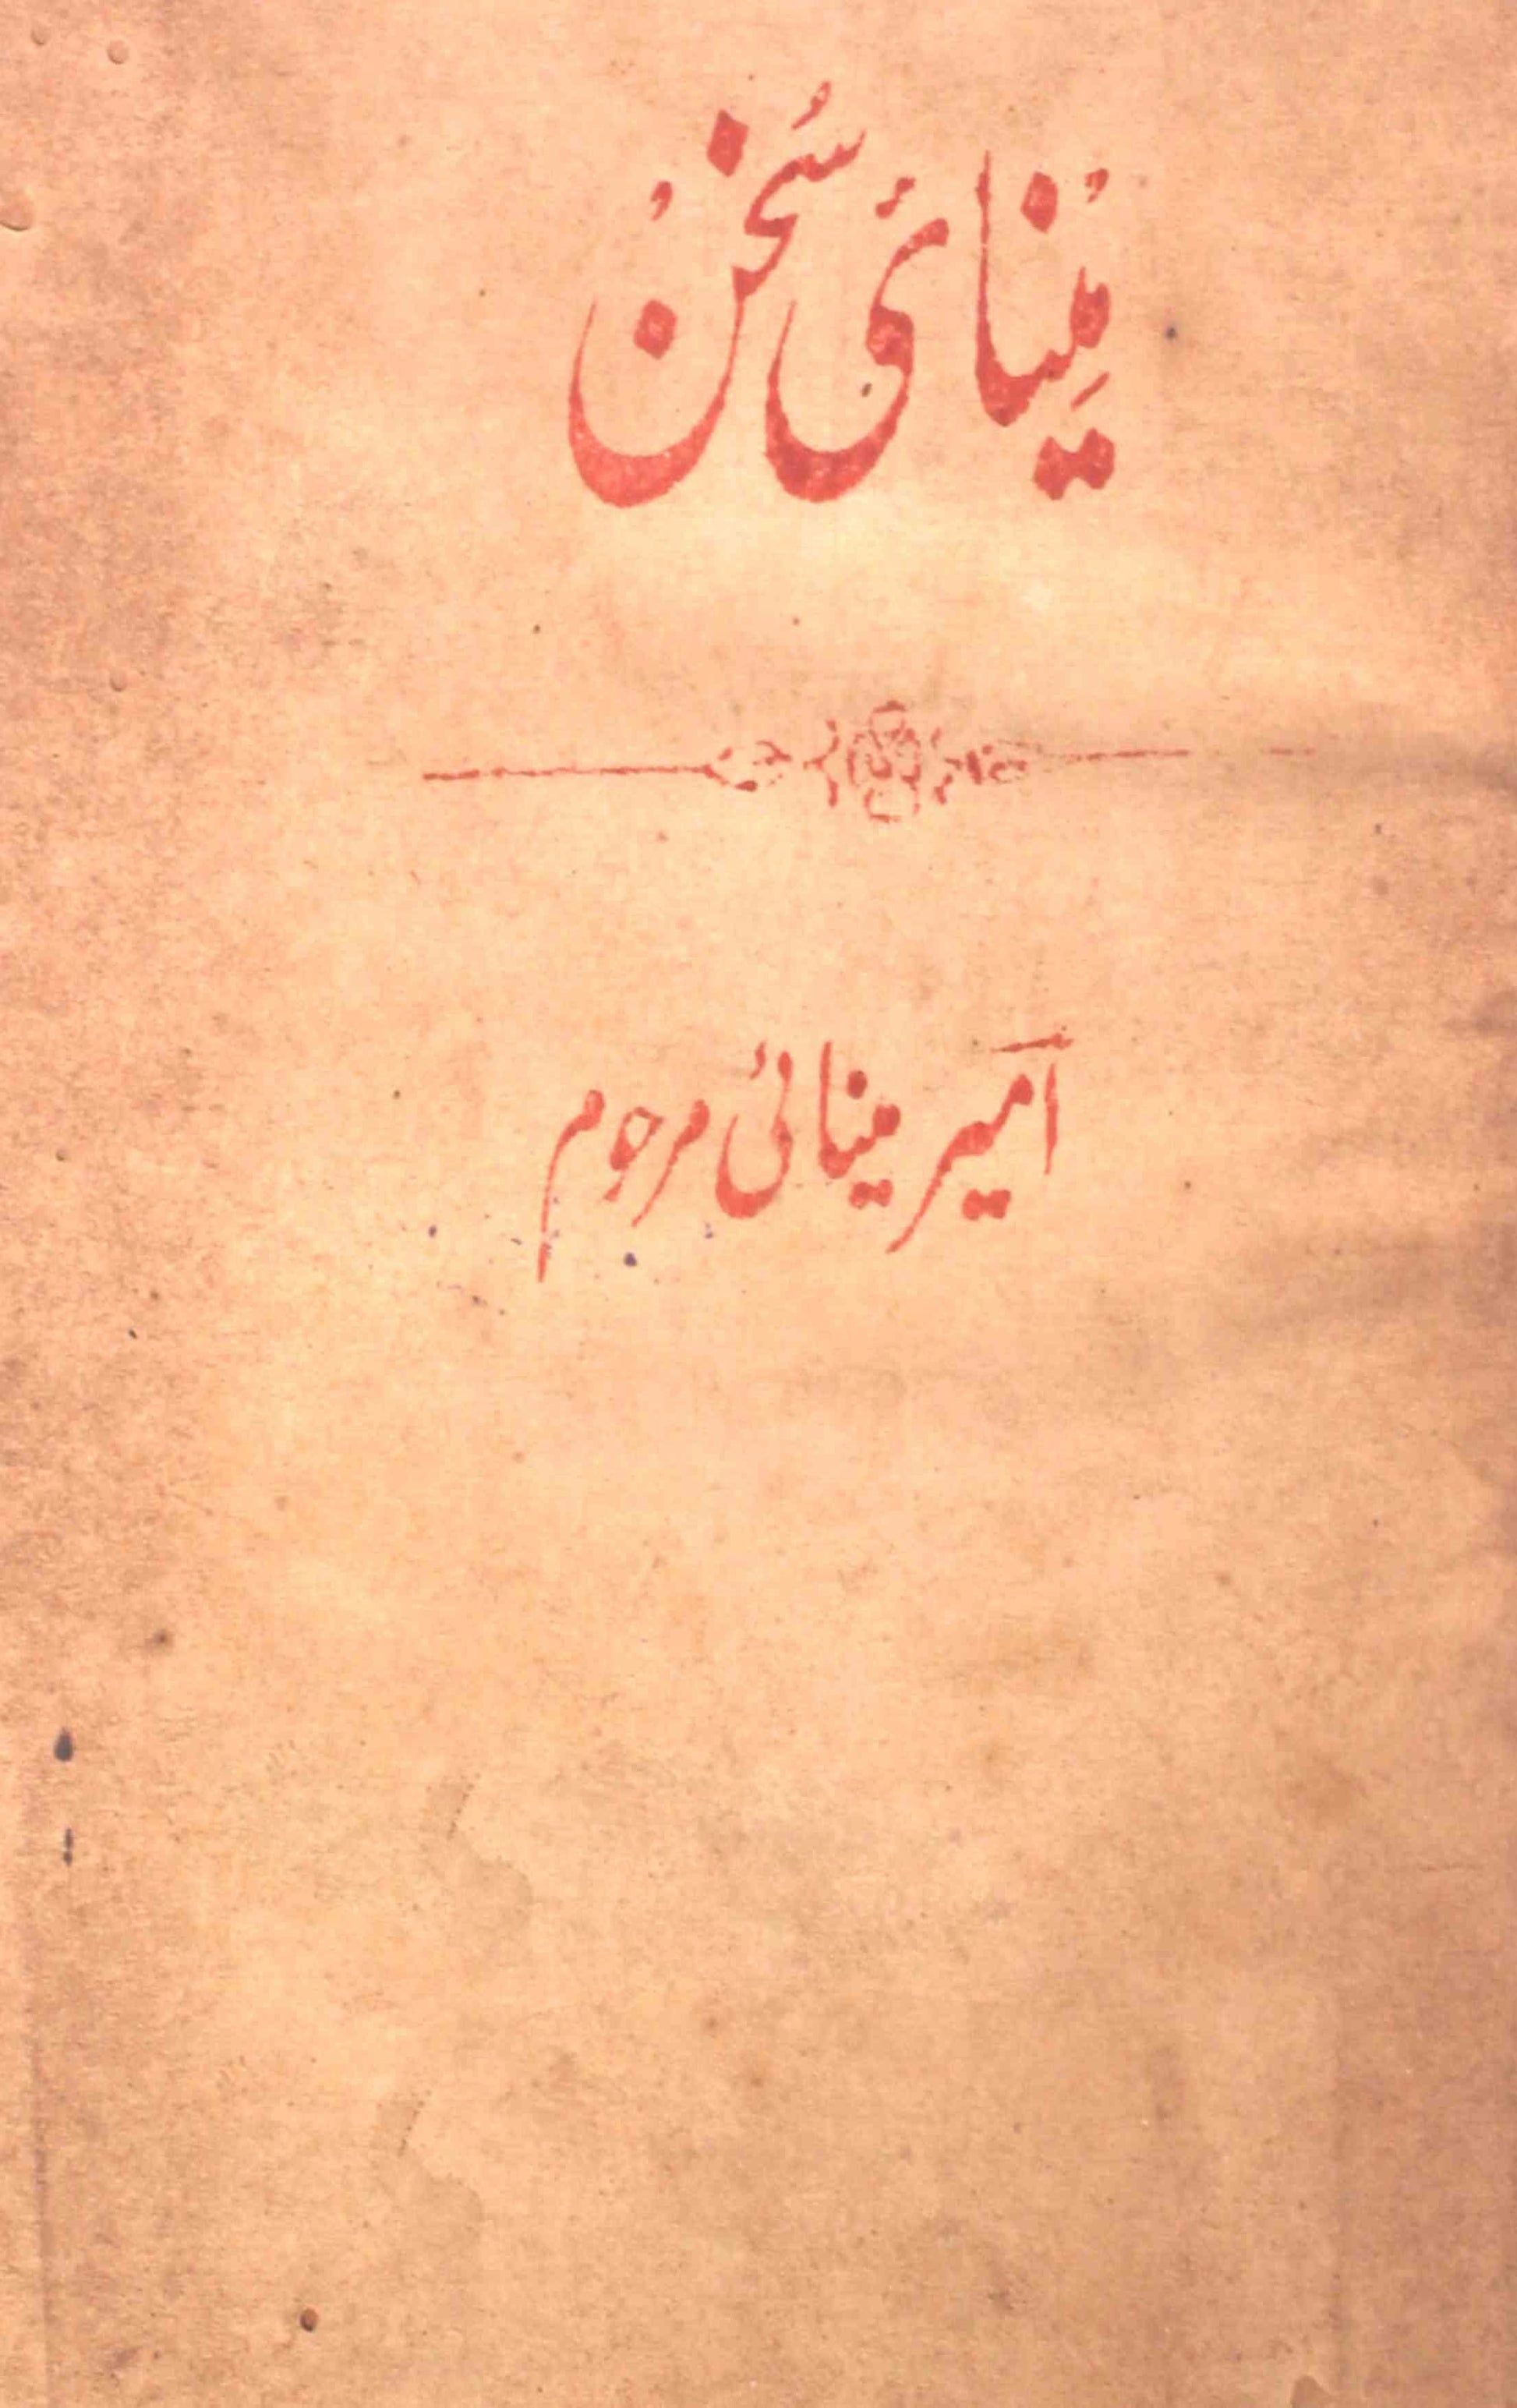 مِینائی سُخن
امیر مینائی مرحوم